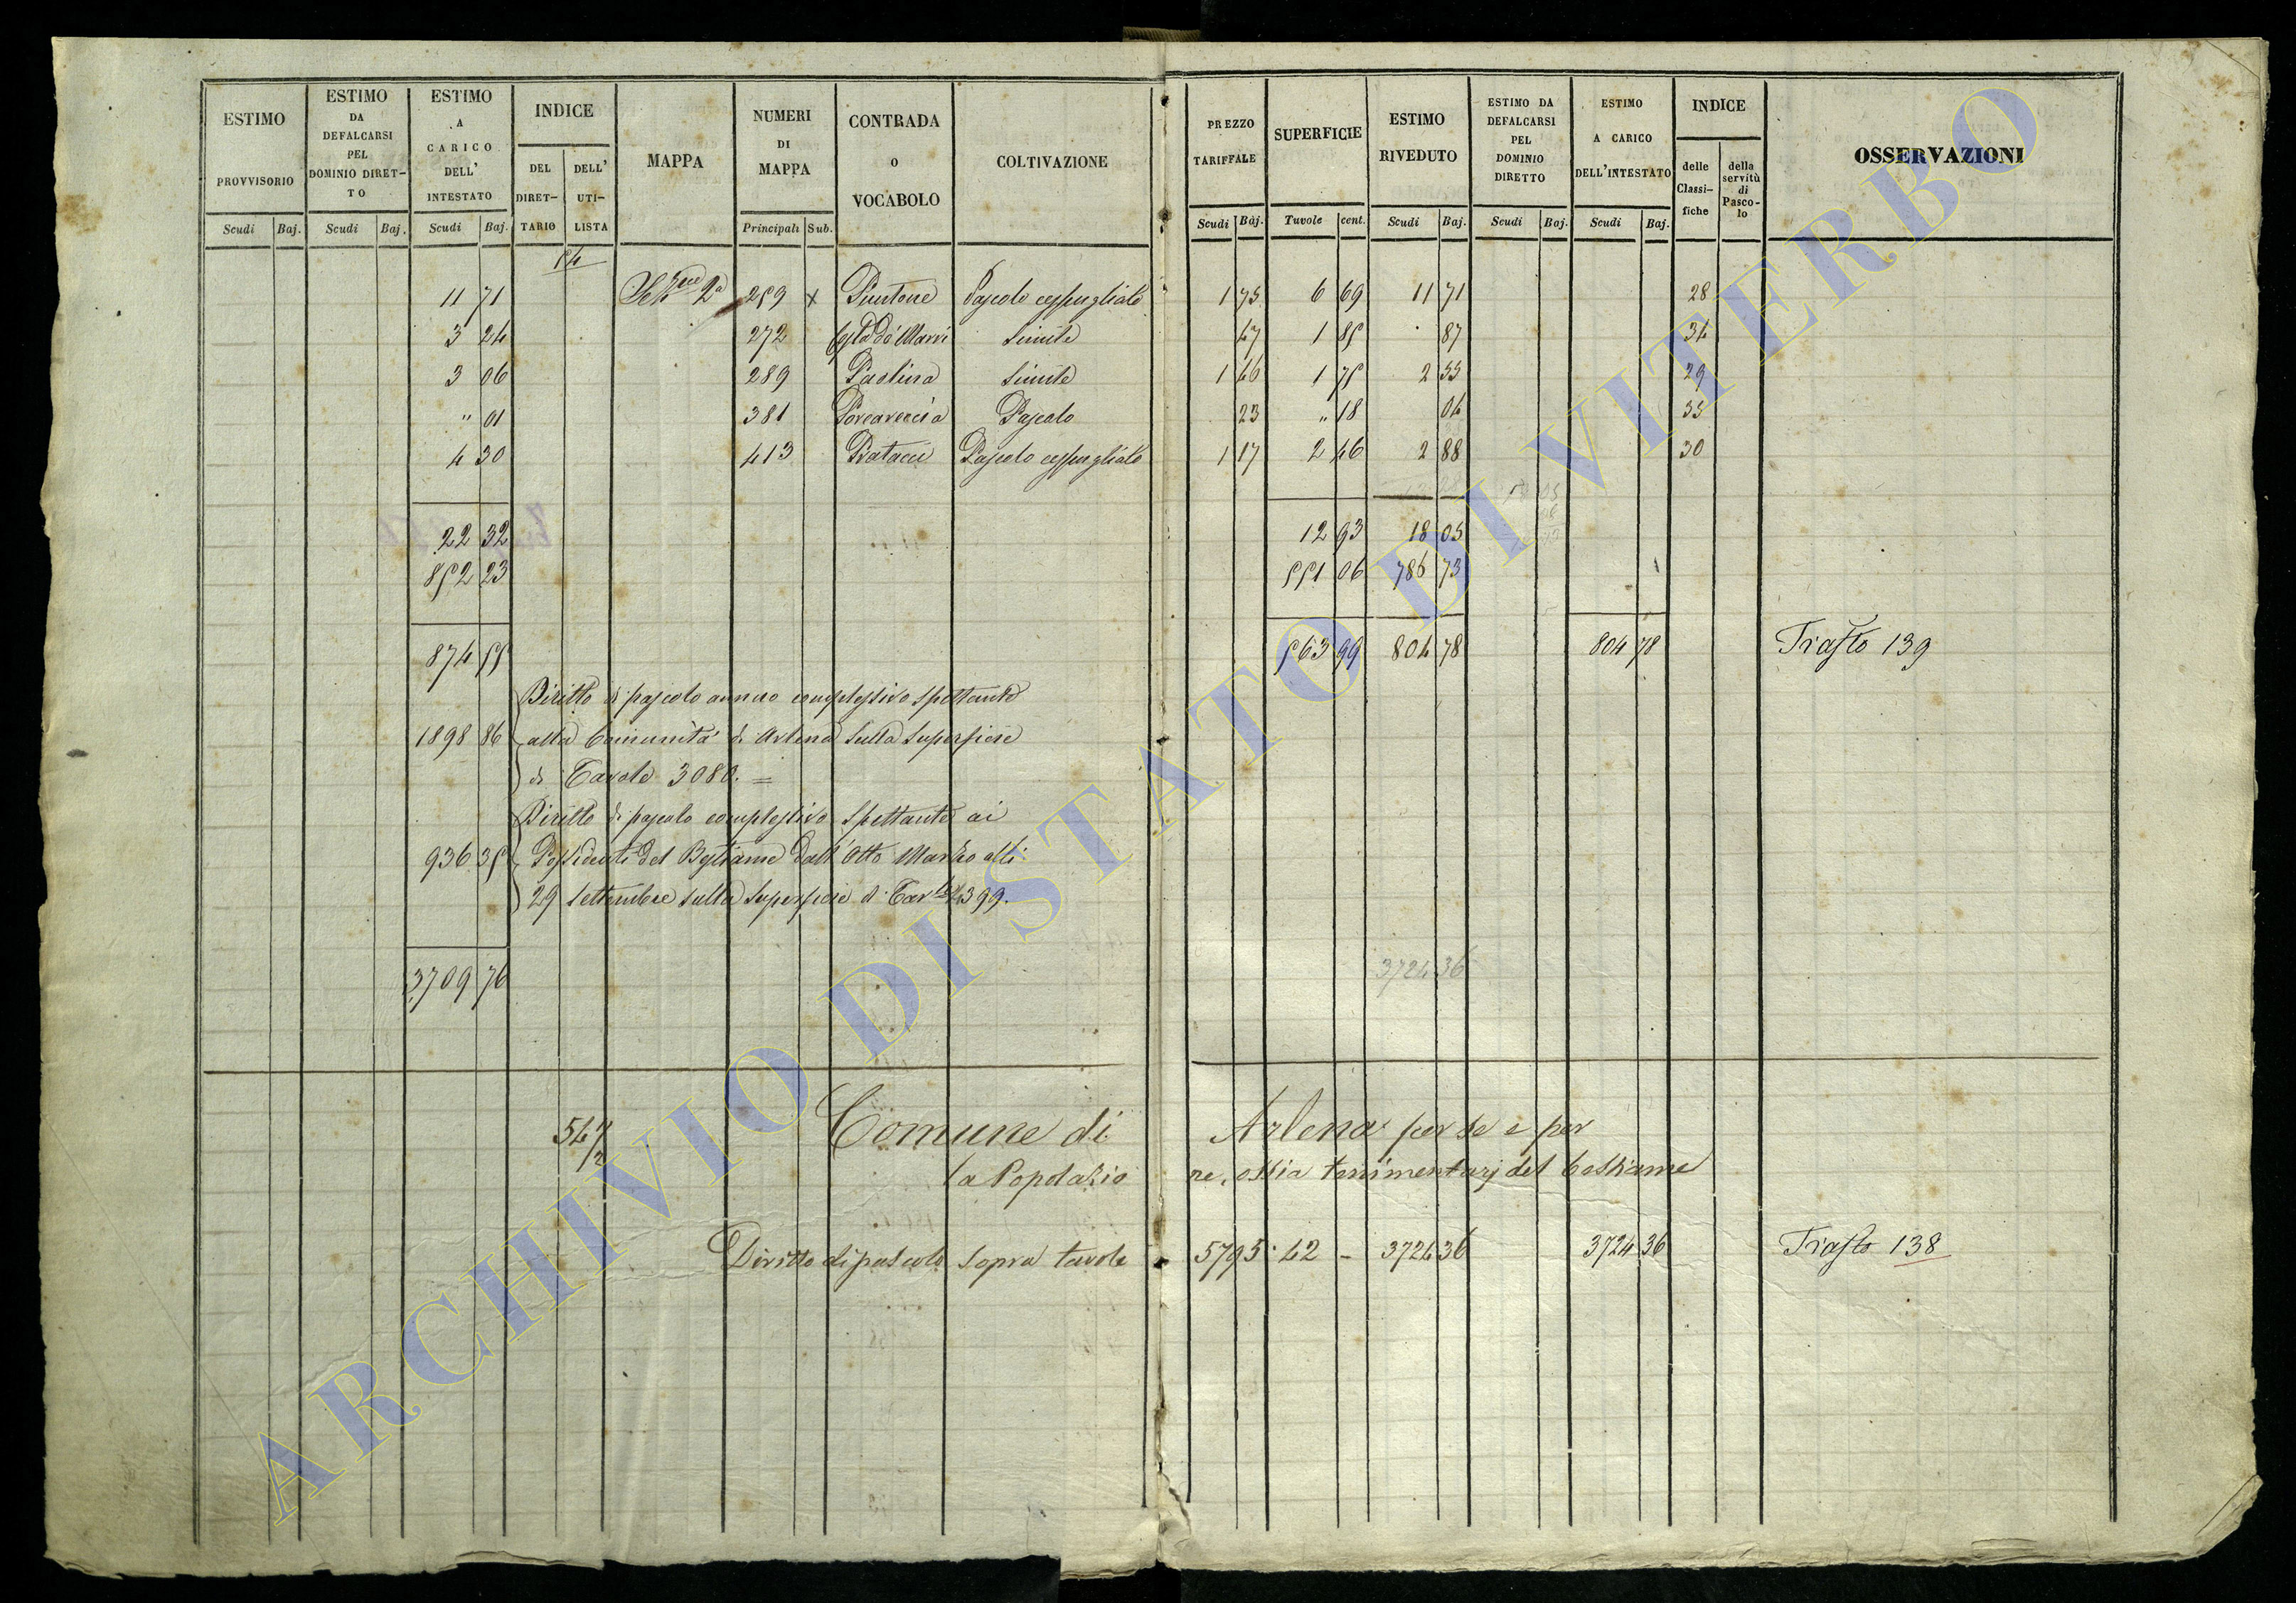 ESTIMO PROVVISORIO
ESTIMO DA DEFALCARSI PEL DOMINIO DIRETTO
ESTIMO A CARICO DELL' INTESTATO
INDICE
DEL DIRETTARIO
DELL' UTILISTA
MAPPA
NUMERI DI MAPPA
CONTRADA O VOCABOLO
COLTIVAZIONE
PREZZO TARIFFALE
SUPERFICIE
ESTIMO RIVEDUTO
ESTIMO DA DEFALCARSI PEL DOMINIO DIRETTO
ESTIMO A CARICO DELL'INTESTATO
INDICE
delle Classifiche
della servitù di Pascolo
OSSERVAZIONI
Scudi Baj. Scudi Baj. Scudi Baj. Principali Sub. Scudi Baj. Tavole cent. Scudi Baj. Scudi Baj. Scudi Baj.
54
11 71 2a 259 x Puntone Pascolo cespugliato 1 75 6 69 11 71 28
3 24 272 simile 47 1 85 . 87 34
3 06 289 Paolina simile 1 46 1 75 2 55 29
" 01 381 Pascolo 23 " 18 04 35
4 30 413 Pratacci Pascolo cespugliato 1 17 2 46 2 88 30
22 32 12 93 18 05
852 23 551 06 786 73
874 55 563 99 804 78 804 78 Trasto 139
Diritto di pascolo annuo complessivo spettante
1898 86 alla Comunità di Arlena sulla superficie
di Tavole 3080. =
Diritto di pascolo complessivo spettante ai
936 35 Possidenti del Bestiame dall'Otto Marzo alli
29 settembre sulla superficie di Tavle 2399.
3709 76 3724 36
54 1/2 Comune di Arlena per se e per
la Popolazio ne, ossia tenimentarj del bestiame
Diritto di pascolo sopra tavole 5795.42 - 3724 36 3724 36 Trasto 138
ARCHIVIO DI STATO DI VITERBO